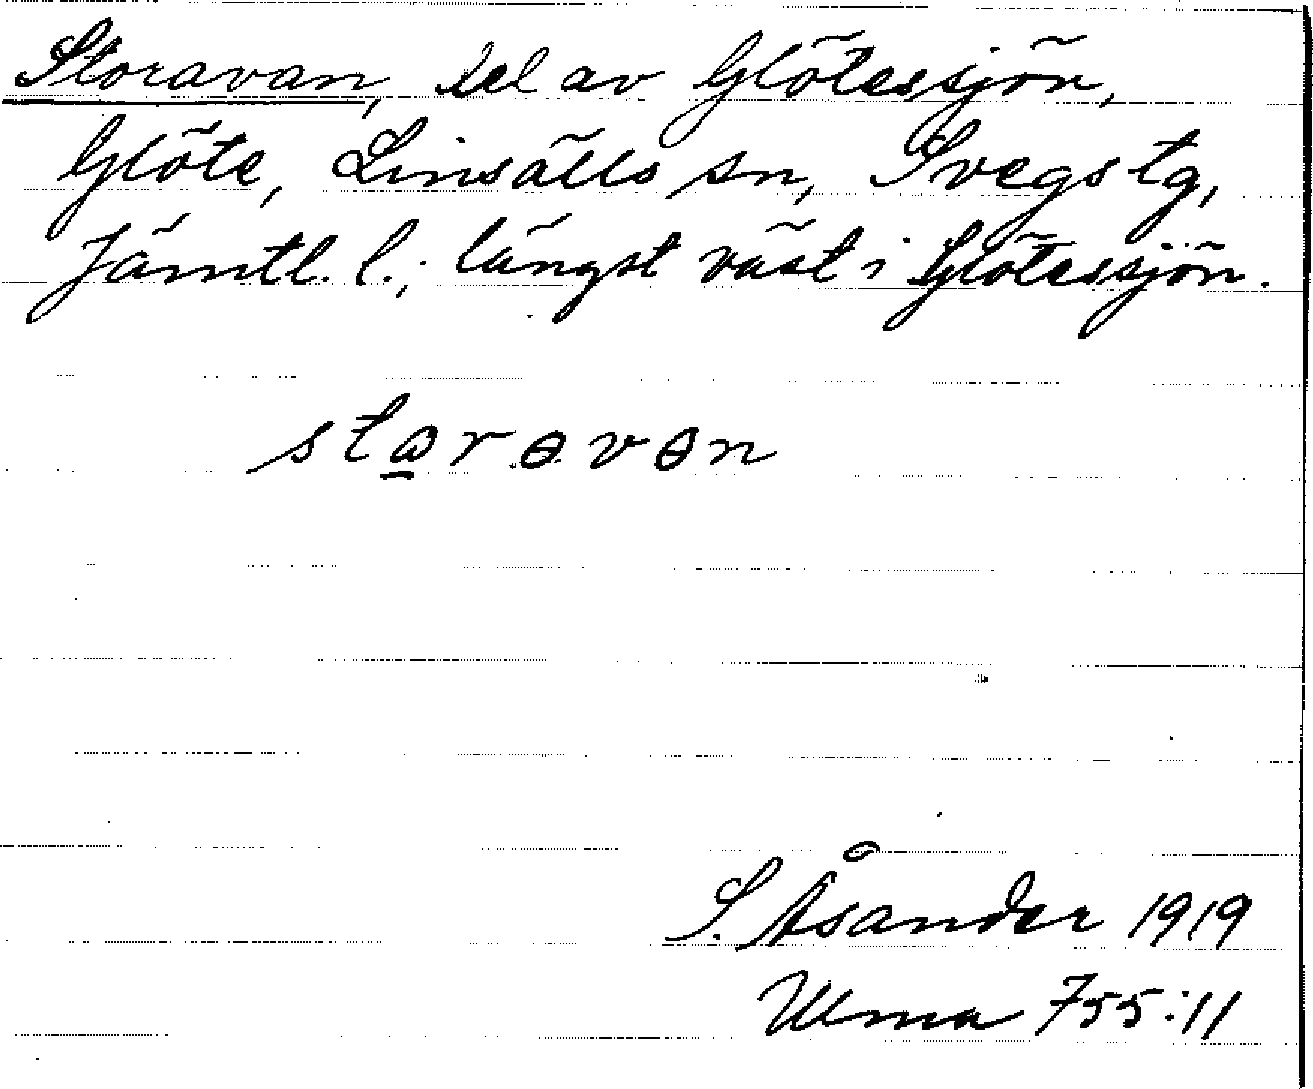 Storavan, del av Glötessjön,
Glöte, Linsälls sn, Svegs tg,
Jämtl. l.; längst väst i Glötessjön.
stɷrɵvɵn
S. Åsander 1919
Ulma 755:11